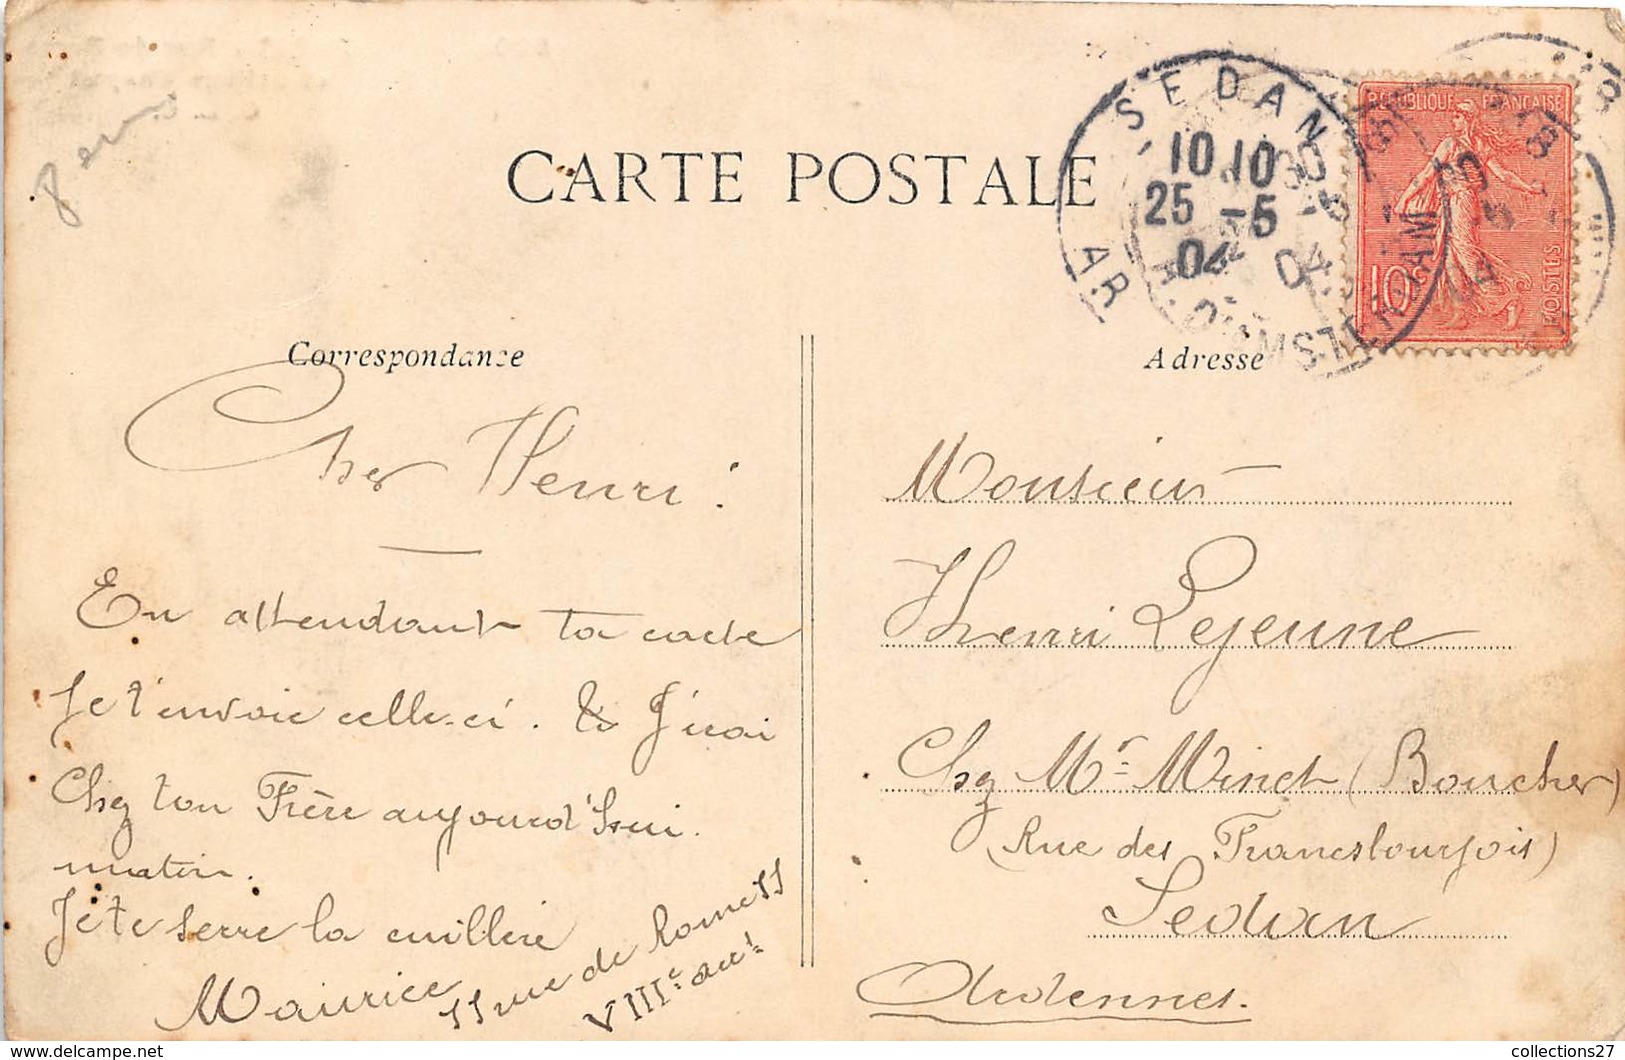 8 em
CARTE POSTALE
SEDAN
10 10
25 -5
04
AR
RUE D'AMSTERDAM
04
REPUBLIQUE FRANCAISE
10c
POSTES
Correspondance
Adresse
Cher Henri :
En attendant ta carte
Je t'envoie celle-ci. J'irai
Chez ton Frère aujourd'hui
matin.
Je te serre la cuillère
Maurice
55 rue de Rome 55
VIIIe arrt
Monsieur
Henri Lejeune
Chez Mr Minet (Boucher)
(Rue des Francsbourgois)
Sedan
Ardennes.
collections27